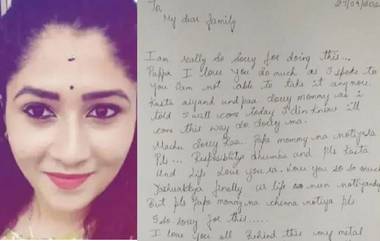 To
27/04/202
My dear family
I am really so sorry for doing this...
Pappa I love you so much as I spoke to
you I am not able to take it anymore.
Kasta aiyand undpaa sorry mommy as i
told I will come today I din know i'll
come this way so sorry ma.
Macha sorry Raa. Papa mommy na notiyala
Pls... Responsiblity and pls Kasta
And Life Love you ra. Love you so so much
finally us life
But pls Papa mommy na chinna notiya pls
I so sorry for this.....
I love you all Behind this my metal